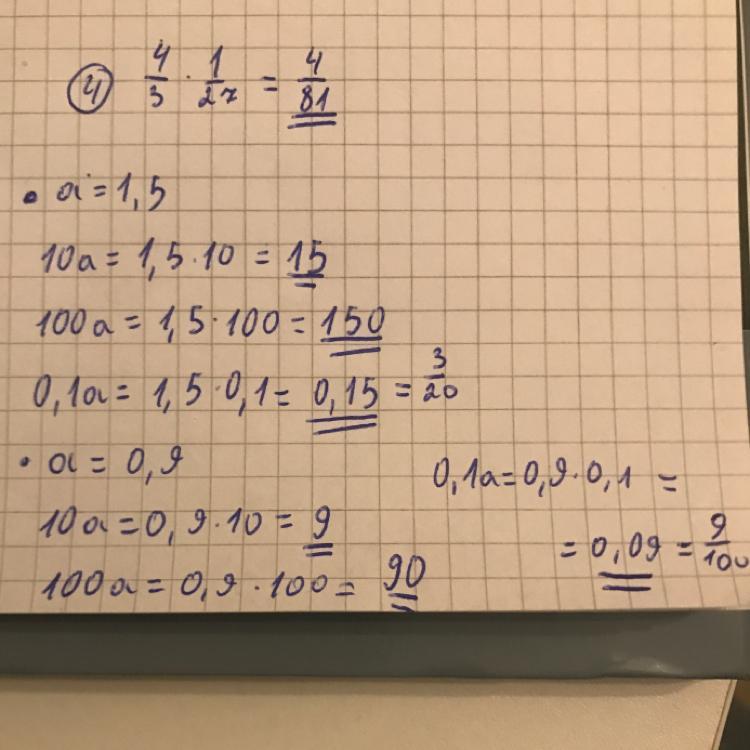 ④ 4/3 · 1/27 = 4/81
• a = 1,5
10a = 1,5 · 10 = 15
100a = 1,5 · 100 = 150
0,1a = 1,5 · 0,1 = 0,15 = 3/20
• a = 0,9
10a = 0,9 · 10 = 9
100a = 0,9 · 100 = 90
0,1a = 0,9 · 0,1 =
= 0,09 = 9/100